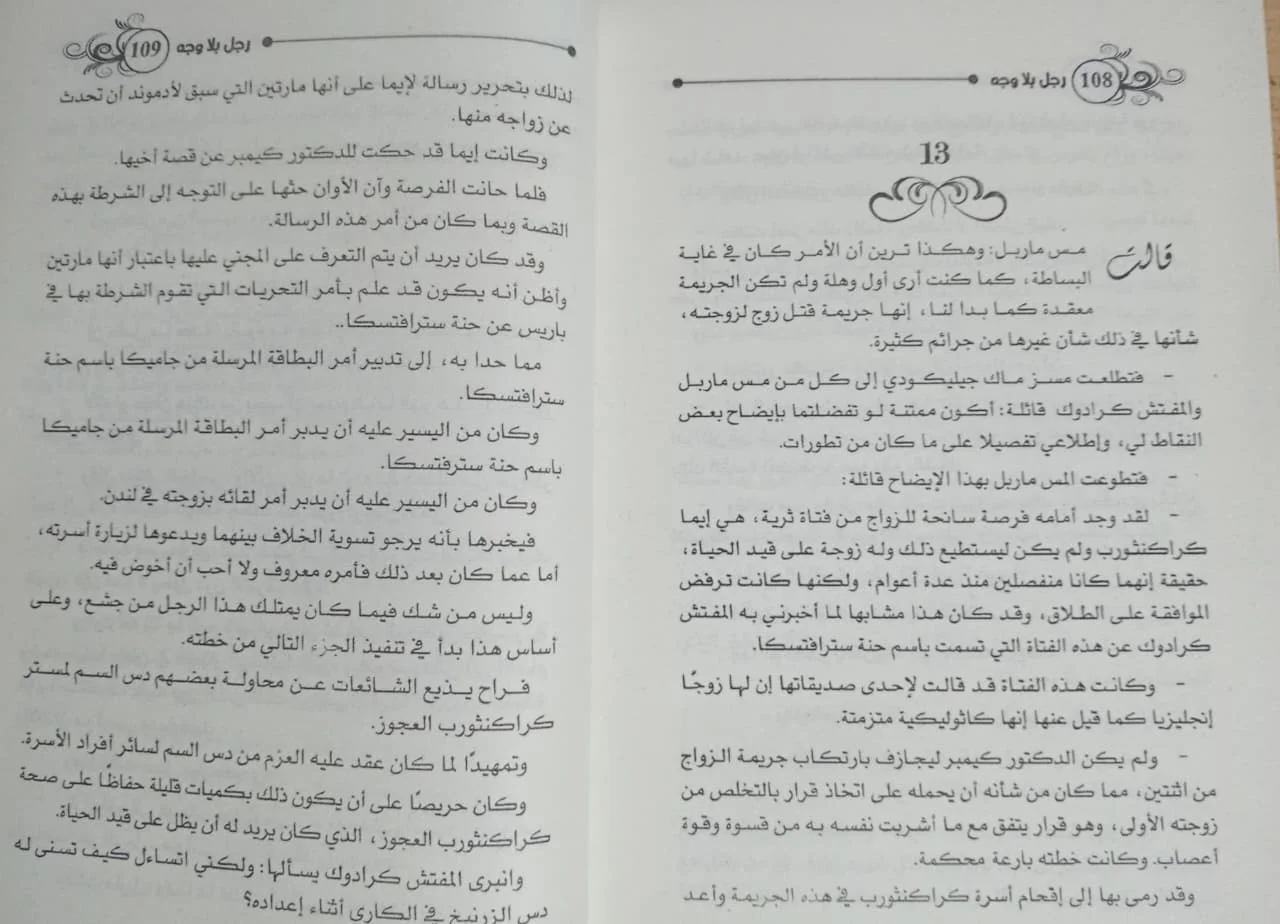 108 رجل بلا وجه
13
قالت مس ماربل: وهكذا ترين أن الأمر كان في غاية
البساطة، كما كنت أرى أول وهلة ولم تكن الجريمة
معقدة كما بدا لنا، إنها جريمة قتل زوج لزوجته،
شأنها في ذلك شأن غيرها من جرائم كثيرة.
- فتطلعت مسز ماك جيليكودي إلى كل من مس ماربل
والمفتش كرادوك قائلة: أكون ممتنة لو تفضلتما بإيضاح بعض
النقاط لي، وإطلاعي تفصيلا على ما كان من تطورات.
- فتطوعت المس ماربل بهذا الإيضاح قائلة:
- لقد وجد أمامه فرصة سانحة للزواج من فتاة ثرية، هي إيما
كراكنثورب ولم يكن ليستطيع ذلك وله زوجة على قيد الحياة،
حقيقة إنهما كانا منفصلين منذ عدة أعوام، ولكنها كانت ترفض
الموافقة على الطلاق، وقد كان هذا مشابها لما أخبرني به المفتش
كرادوك عن هذه الفتاة التي تسمت باسم حنة سترافتسكا.
- وكانت هذه الفتاة قد قالت لإحدى صديقاتها إن لها زوجًا
إنجليزيا كما قيل عنها إنها كاثوليكية متزمتة.
- ولم يكن الدكتور كيمبر ليجازف بارتكاب جريمة الزواج
من اثنتين، مما كان من شأنه أن يحمله على اتخاذ قرار بالتخلص من
زوجته الأولى، وهو قرار يتفق مع ما أشربت نفسه به من قسوة وقوة
أعصاب. وكانت خطته بارعة محكمة.
وقد رمى بها إلى إقحام أسرة كراكنثورب في هذه الجريمة وأعد
109 رجل بلا وجه
لذلك بتحرير رسالة لإيما على أنها مارتين التي سبق لأدموند أن تحدث
عن زواجه منها.
وكانت إيما قد حكت للدكتور كيمبر عن قصة أخيها.
فلما حانت الفرصة وآن الأوان حثها على التوجه إلى الشرطة بهذه
القصة وبما كان من أمر هذه الرسالة.
وقد كان يريد أن يتم التعرف على المجني عليها باعتبار أنها مارتين
وأظن أنه يكون قد علم بأمر التحريات التي تقوم الشرطة بها في
باريس عن حنة سترافتسكا..
مما حدا به، إلى تدبير أمر البطاقة المرسلة من جاميكا باسم حنة
سترافتسكا.
وكان من اليسير عليه أن يدبر أمر البطاقة المرسلة من جاميكا
باسم حنة سترفتسكا.
وكان من اليسير عليه أن يدبر أمر لقائه بزوجته في لندن.
فيخبرها بأنه يرجو تسوية الخلاف بينهما ويدعوها لزيارة أسرته،
أما عما كان بعد ذلك فأمره معروف ولا أحب أن أخوض فيه.
وليس من شك فيما كان يمتلك هذا الرجل من جشع، وعلى
أساس هذا بدأ في تنفيذ الجزء التالي من خطته.
فراح يذيع الشائعات عن محاولة بعضهم دس السم لمستر
كراكنثورب العجوز.
وتمهيدًا لما كان عقد عليه العزم من دس السم لسائر أفراد الأسرة.
وكان حريصًا على أن يكون ذلك بكميات قليلة حفاظًا على صحة
كراكنثورب العجوز، الذي كان يريد له أن يظل على قيد الحياة.
وانبرى المفتش كرادوك يسألها: ولكني اتساءل كيف تسنى له
دس الزرنيخ في الكاري أثناء إعداده؟